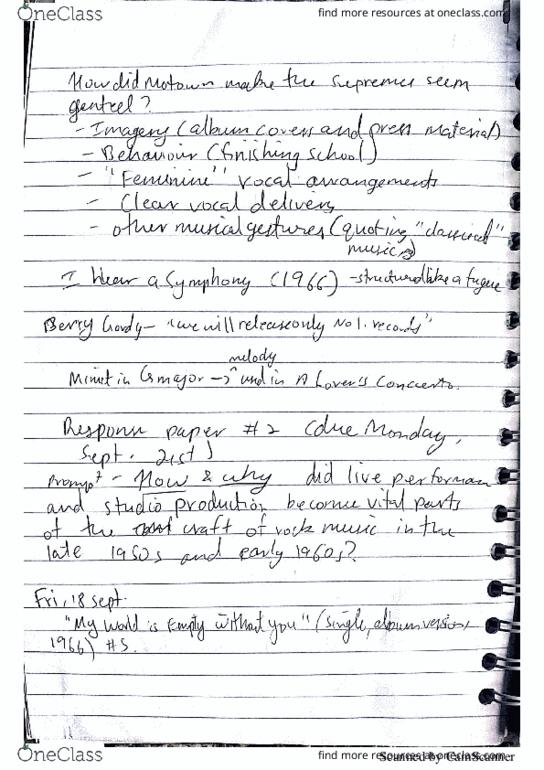 OneClass
find more resources at oneclass.com
How did Motown make the Supremes seem
genteel?
- Imagery (album covers and press material)
- Behaviour (finishing school)
- "Feminine" vocal arrangements
- Clear vocal delivery
- other musical gestures (quoting "classical"
music)
I Hear a Symphony (1966) - structured like a fugue
Berry Gordy - "we will release only No 1. records"
melody
Minuet in G major -> used in A Lover's Concerto.
Response paper #2 (due Monday,
Sept. 21st)
Prompt - How & why did live performan
and studio production become vital parts
of the craft of rock music in the
late 1950s and early 1960s?
Fri, 18 sept.
"My World is Empty Without you" (single, album version,
1966) #5.
OneClass
find more resources at oneclass.com
Scanned by CamScanner